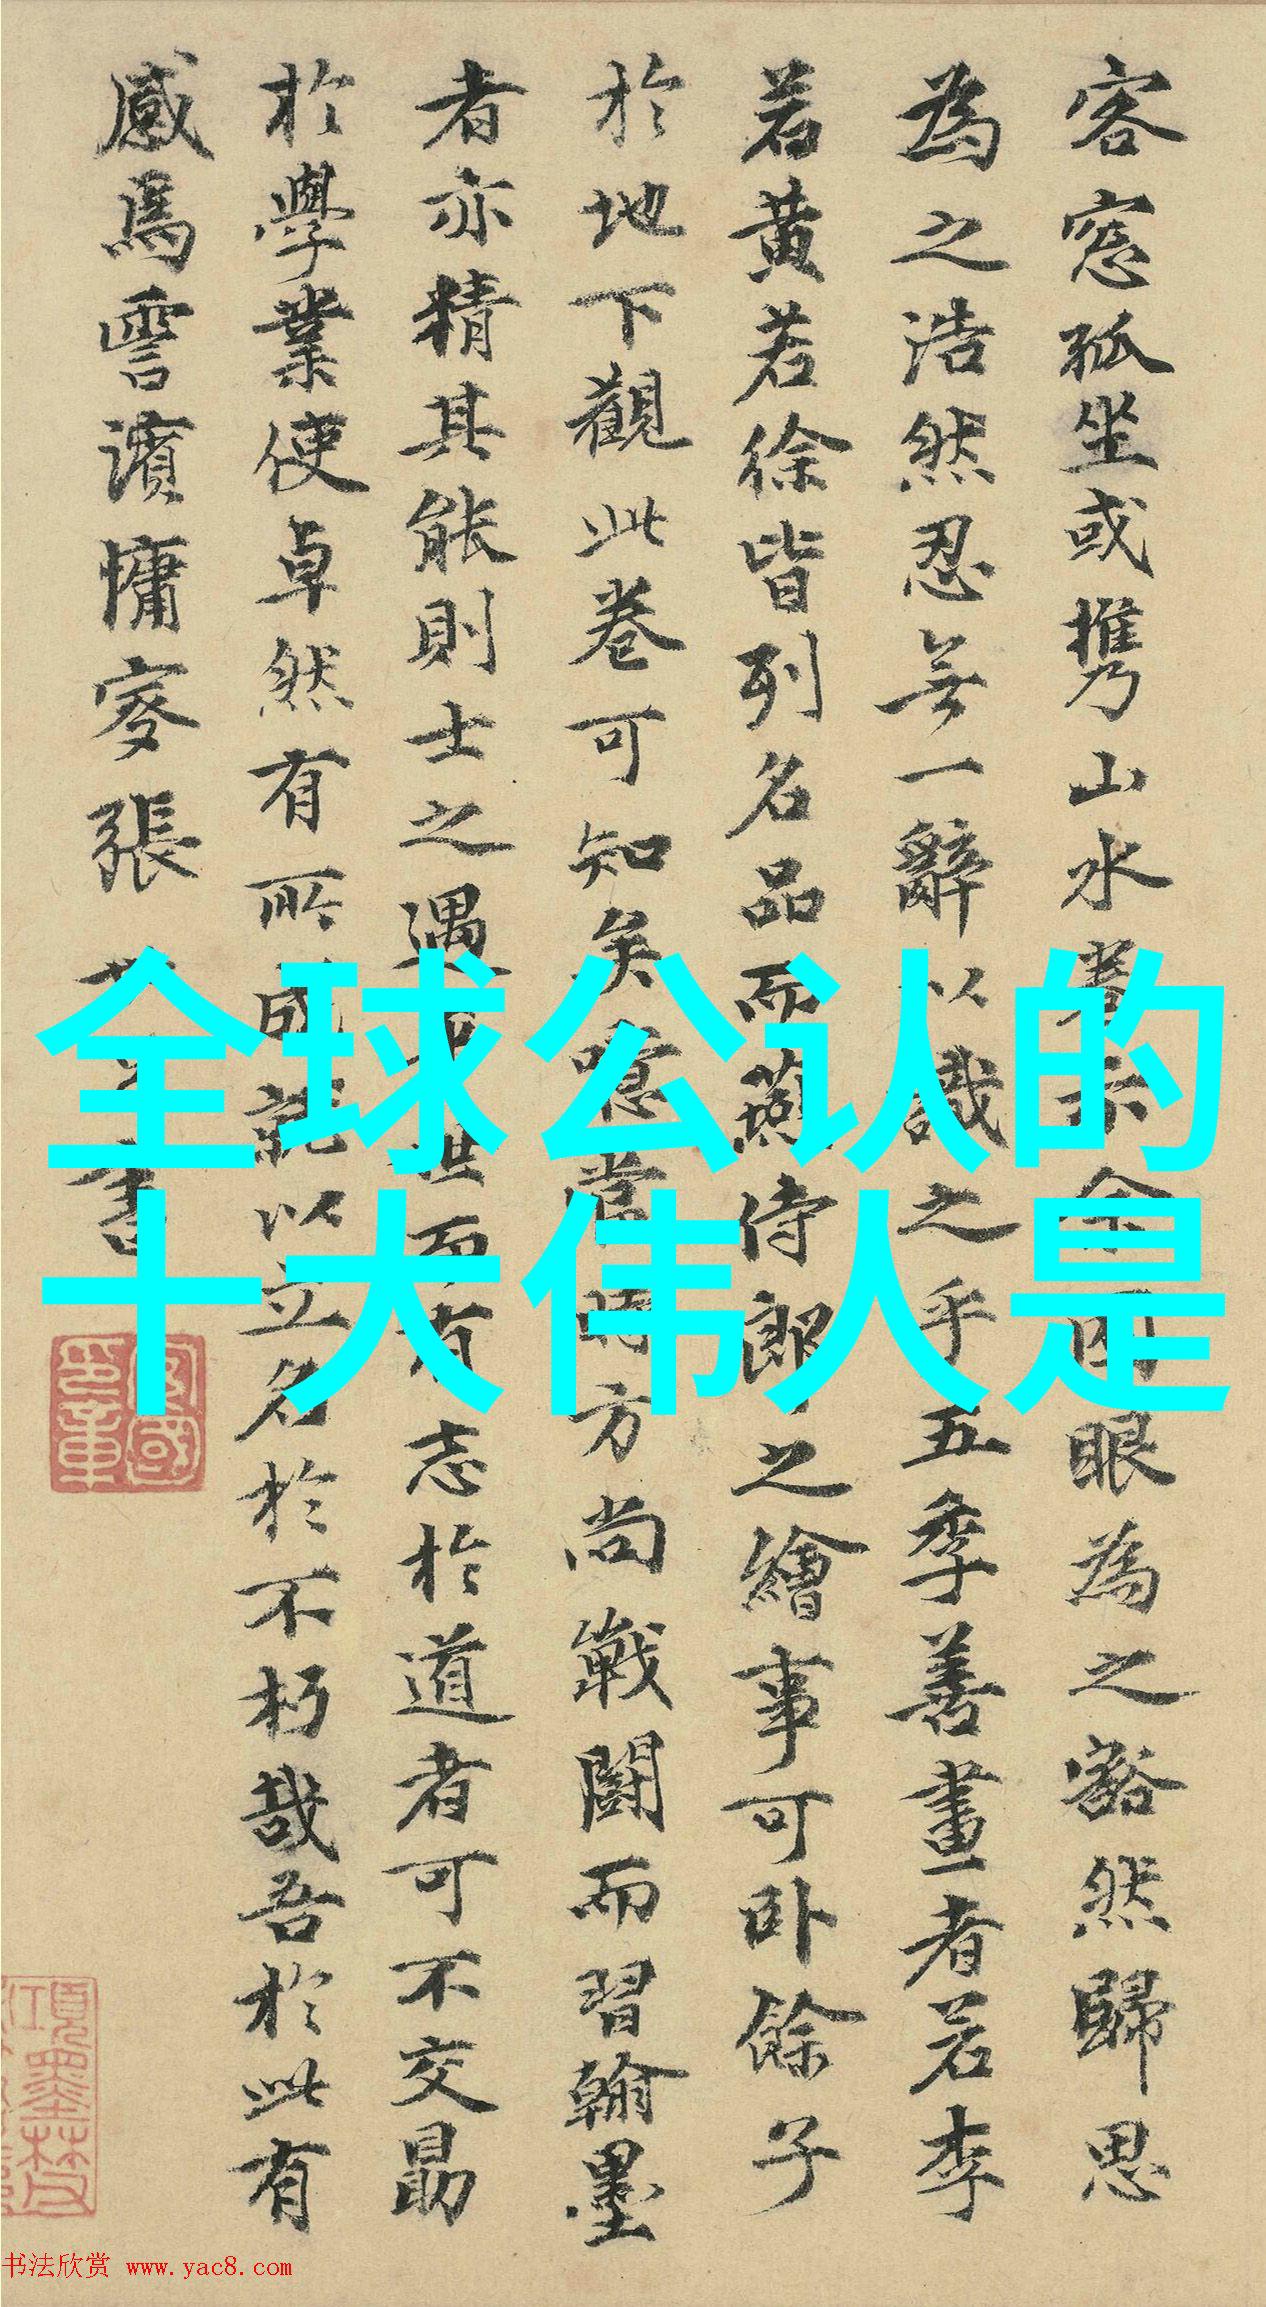 客窓孤坐或携山水
眼為之豁然歸思
為之浩然忍無一辭以識之乎五季善畫者若李
若黄若徐皆列名品而燕侍郎之繪事可卧餘子
於地下觀此卷可知矣噫當時方尚戰鬪而習翰墨
者亦精其能則士之遇
有志於道者可不交勗
於學業使卓然有所成就以立名於不朽哉吾於此有
感焉雪濱慵叟張
全球公认的
十大伟人是
书法欣赏 www.yac8.com